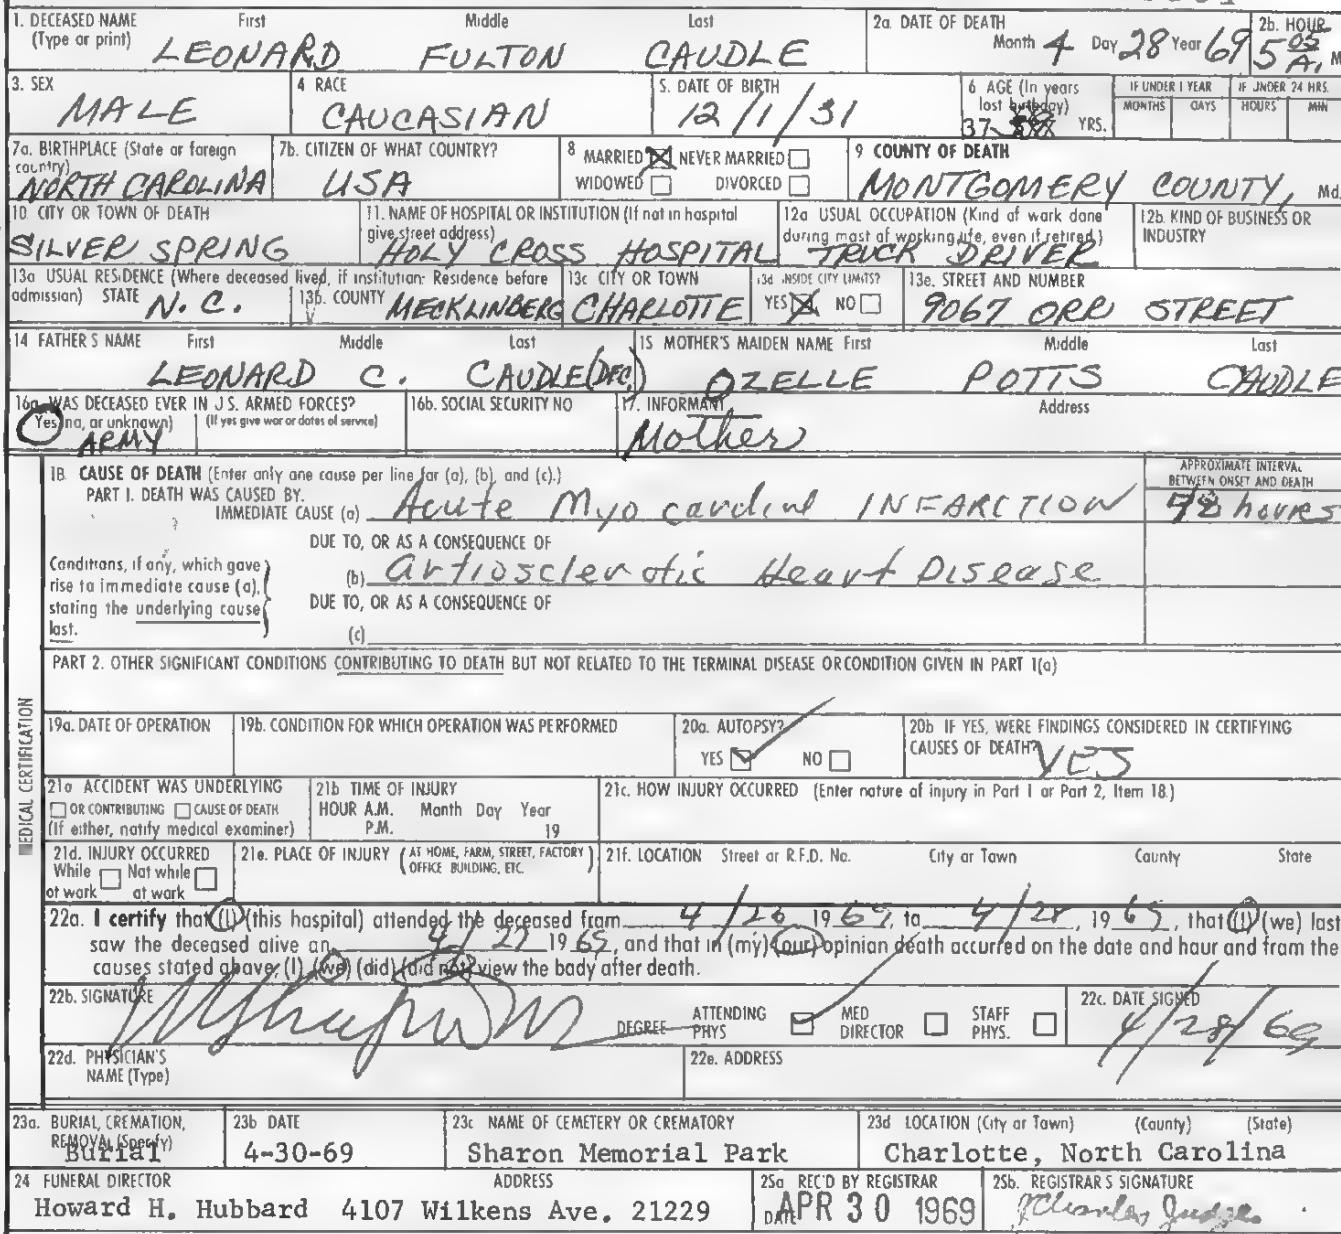 1. DECEASED NAME (Type or print) First LEONARD Middle FULTON Last CAUDLE 2a. DATE OF DEATH Month 4 Day 28 Year 69 2b. HOUR 5 05 A. M
3. SEX MALE 4 RACE CAUCASIAN 5. DATE OF BIRTH 12/1/31 6 AGE (In years last birthday) 37 YRS. IF UNDER 1 YEAR MONTHS DAYS IF UNDER 24 HRS. HOURS MIN
7a. BIRTHPLACE (State or foreign country) NORTH CAROLINA 7b. CITIZEN OF WHAT COUNTRY? USA 8 MARRIED NEVER MARRIED WIDOWED DIVORCED 9 COUNTY OF DEATH MONTGOMERY COUNTY, Md.
10. CITY OR TOWN OF DEATH SILVER SPRING 11. NAME OF HOSPITAL OR INSTITUTION (If not in hospital give street address) HOLY CROSS HOSPITAL 12a USUAL OCCUPATION (Kind of work done during most of working life, even if retired.) TRUCK DRIVER 12b. KIND OF BUSINESS OR INDUSTRY
13a USUAL RESIDENCE (Where deceased lived, if institution: Residence before admission) STATE N.C. 13b. COUNTY MECKLINBERG 13c CITY OR TOWN CHARLOTTE 13d INSIDE CITY LIMITS? YES NO 13e. STREET AND NUMBER 9067 ORR STREET
14 FATHER'S NAME First LEONARD Middle C. Last CAUDLE (DEC.) 15 MOTHER'S MAIDEN NAME First OZELLE Middle POTTS Last CAUDLE
16a. WAS DECEASED EVER IN U.S. ARMED FORCES? Yes, no, or unknown) (If yes give war or dates of service) ARMY 16b. SOCIAL SECURITY NO 17. INFORMANT Mother Address
MEDICAL CERTIFICATION
18. CAUSE OF DEATH (Enter only one cause per line for (a), (b), and (c).)
PART I. DEATH WAS CAUSED BY.
IMMEDIATE CAUSE (a) Acute Myo cardial INFARCTION
APPROXIMATE INTERVAL BETWEEN ONSET AND DEATH hours
Conditions, if any, which gave rise to immediate cause (a), stating the underlying cause last.
DUE TO, OR AS A CONSEQUENCE OF
(b) artiosclerotic Heart Disease
DUE TO, OR AS A CONSEQUENCE OF
(c)
PART 2. OTHER SIGNIFICANT CONDITIONS CONTRIBUTING TO DEATH BUT NOT RELATED TO THE TERMINAL DISEASE OR CONDITION GIVEN IN PART 1(a)
19a. DATE OF OPERATION 19b. CONDITION FOR WHICH OPERATION WAS PERFORMED 20a. AUTOPSY? YES NO 20b IF YES, WERE FINDINGS CONSIDERED IN CERTIFYING CAUSES OF DEATH? YES
21a ACCIDENT WAS UNDERLYING OR CONTRIBUTING CAUSE OF DEATH (If either, notify medical examiner) 21b TIME OF INJURY HOUR A.M. Month Day Year P.M. 19 21c. HOW INJURY OCCURRED (Enter nature of injury in Part 1 or Part 2, Item 18.)
21d. INJURY OCCURRED While at work Not while at work 21e. PLACE OF INJURY (AT HOME, FARM, STREET, FACTORY OFFICE BUILDING, ETC.) 21f. LOCATION Street or R.F.D. No. City or Town County State
22a. I certify that (I) (this hospital) attended the deceased from 4/26 1969, to 4/28, 1969, that (I) (we) last
saw the deceased alive on 4/27 1969, and that in (my) (our) opinion death occurred on the date and hour and from the
causes stated above, (I) (we) (did) (did not) view the body after death.
22b. SIGNATURE DEGREE ATTENDING PHYS MED DIRECTOR STAFF PHYS. 22c. DATE SIGNED 4/28/69
22d. PHYSICIAN'S NAME (Type) 22e. ADDRESS
23a. BURIAL, CREMATION, REMOVAL (Specify) Burial 23b DATE 4-30-69 23c NAME OF CEMETERY OR CREMATORY Sharon Memorial Park 23d LOCATION (City or Town) (County) (State) Charlotte, North Carolina
24 FUNERAL DIRECTOR ADDRESS Howard H. Hubbard 4107 Wilkens Ave. 21229 25a REC'D BY REGISTRAR DATE APR 30 1969 25b. REGISTRAR'S SIGNATURE Charles Judge